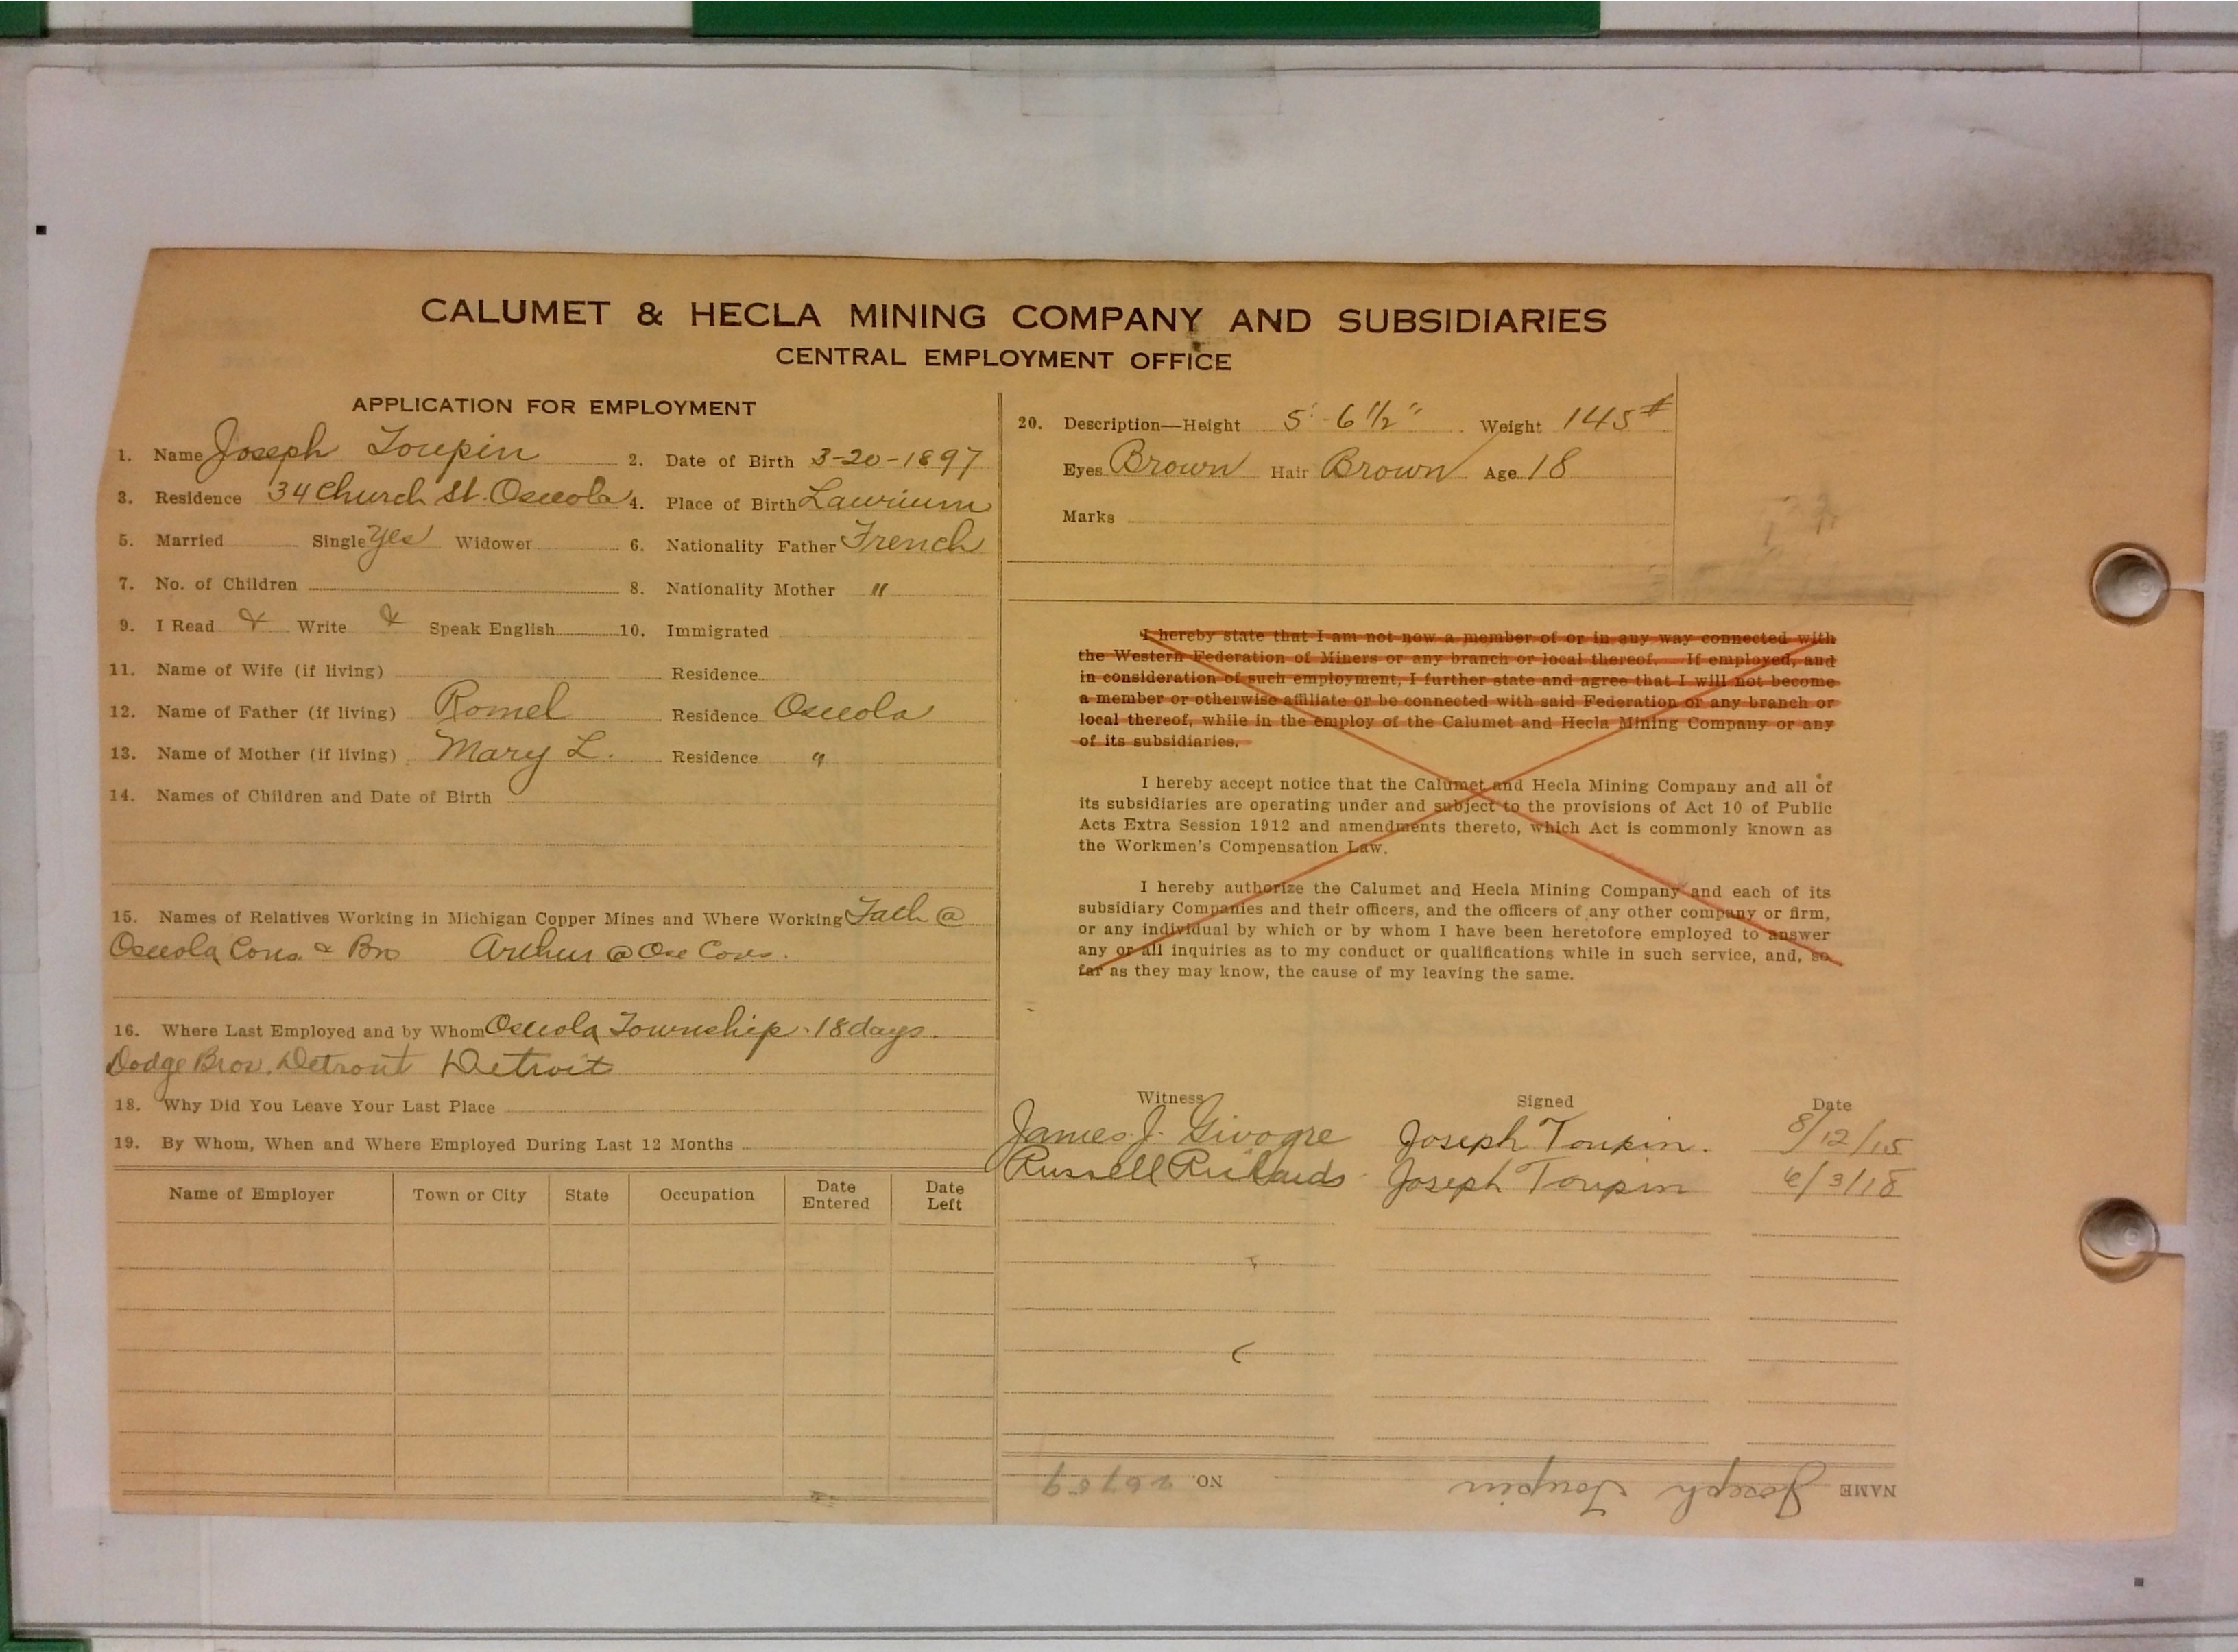 CALUMET & HECLA MINING COMPANY AND SUBSIDIARIES
CENTRAL EMPLOYMENT OFFICE
APPLICATION FOR EMPLOYMENT
1. Name Joseph Toupin 2. Date of Birth 3-20-1897
3. Residence 34 Church St. Osceola 4. Place of Birth Laurium
5. Married Single Yes Widower 6. Nationality Father French
7. No. of Children 8. Nationality Mother "
9. I Read & Write & Speak English 10. Immigrated
11. Name of Wife (if living) Residence
12. Name of Father (if living) Romel Residence Osceola
13. Name of Mother (if living) Mary L. Residence "
14. Names of Children and Date of Birth
15. Names of Relatives Working in Michigan Copper Mines and Where Working Fath @
Osceola Cons. & Bro Arthur @ Osc Cons.
16. Where Last Employed and by Whom Osceola Township. 18 days.
Dodge Bros. Detroit Detroit
18. Why Did You Leave Your Last Place
19. By Whom, When and Where Employed During Last 12 Months
Name of Employer Town or City State Occupation Date Entered Date Left
20. Description—Height 5'-6 1/2" Weight 145#
Eyes Brown Hair Brown Age 18
Marks
I hereby state that I am not now a member of or in any way connected with
the Western Federation of Miners or any branch or local thereof. If employed, and
in consideration of such employment, I further state and agree that I will not become
a member or otherwise affiliate or be connected with said Federation or any branch or
local thereof, while in the employ of the Calumet and Hecla Mining Company or any
of its subsidiaries.
I hereby accept notice that the Calumet and Hecla Mining Company and all of
its subsidiaries are operating under and subject to the provisions of Act 10 of Public
Acts Extra Session 1912 and amendments thereto, which Act is commonly known as
the Workmen's Compensation Law.
I hereby authorize the Calumet and Hecla Mining Company and each of its
subsidiary Companies and their officers, and the officers of any other company or firm,
or any individual by which or by whom I have been heretofore employed to answer
any or all inquiries as to my conduct or qualifications while in such service, and, so
far as they may know, the cause of my leaving the same.
Witness Signed Date
James J. Joseph Toupin. 8/12/15
Russell Richards Joseph Toupin 6/3/18
NAME Joseph Toupin NO.